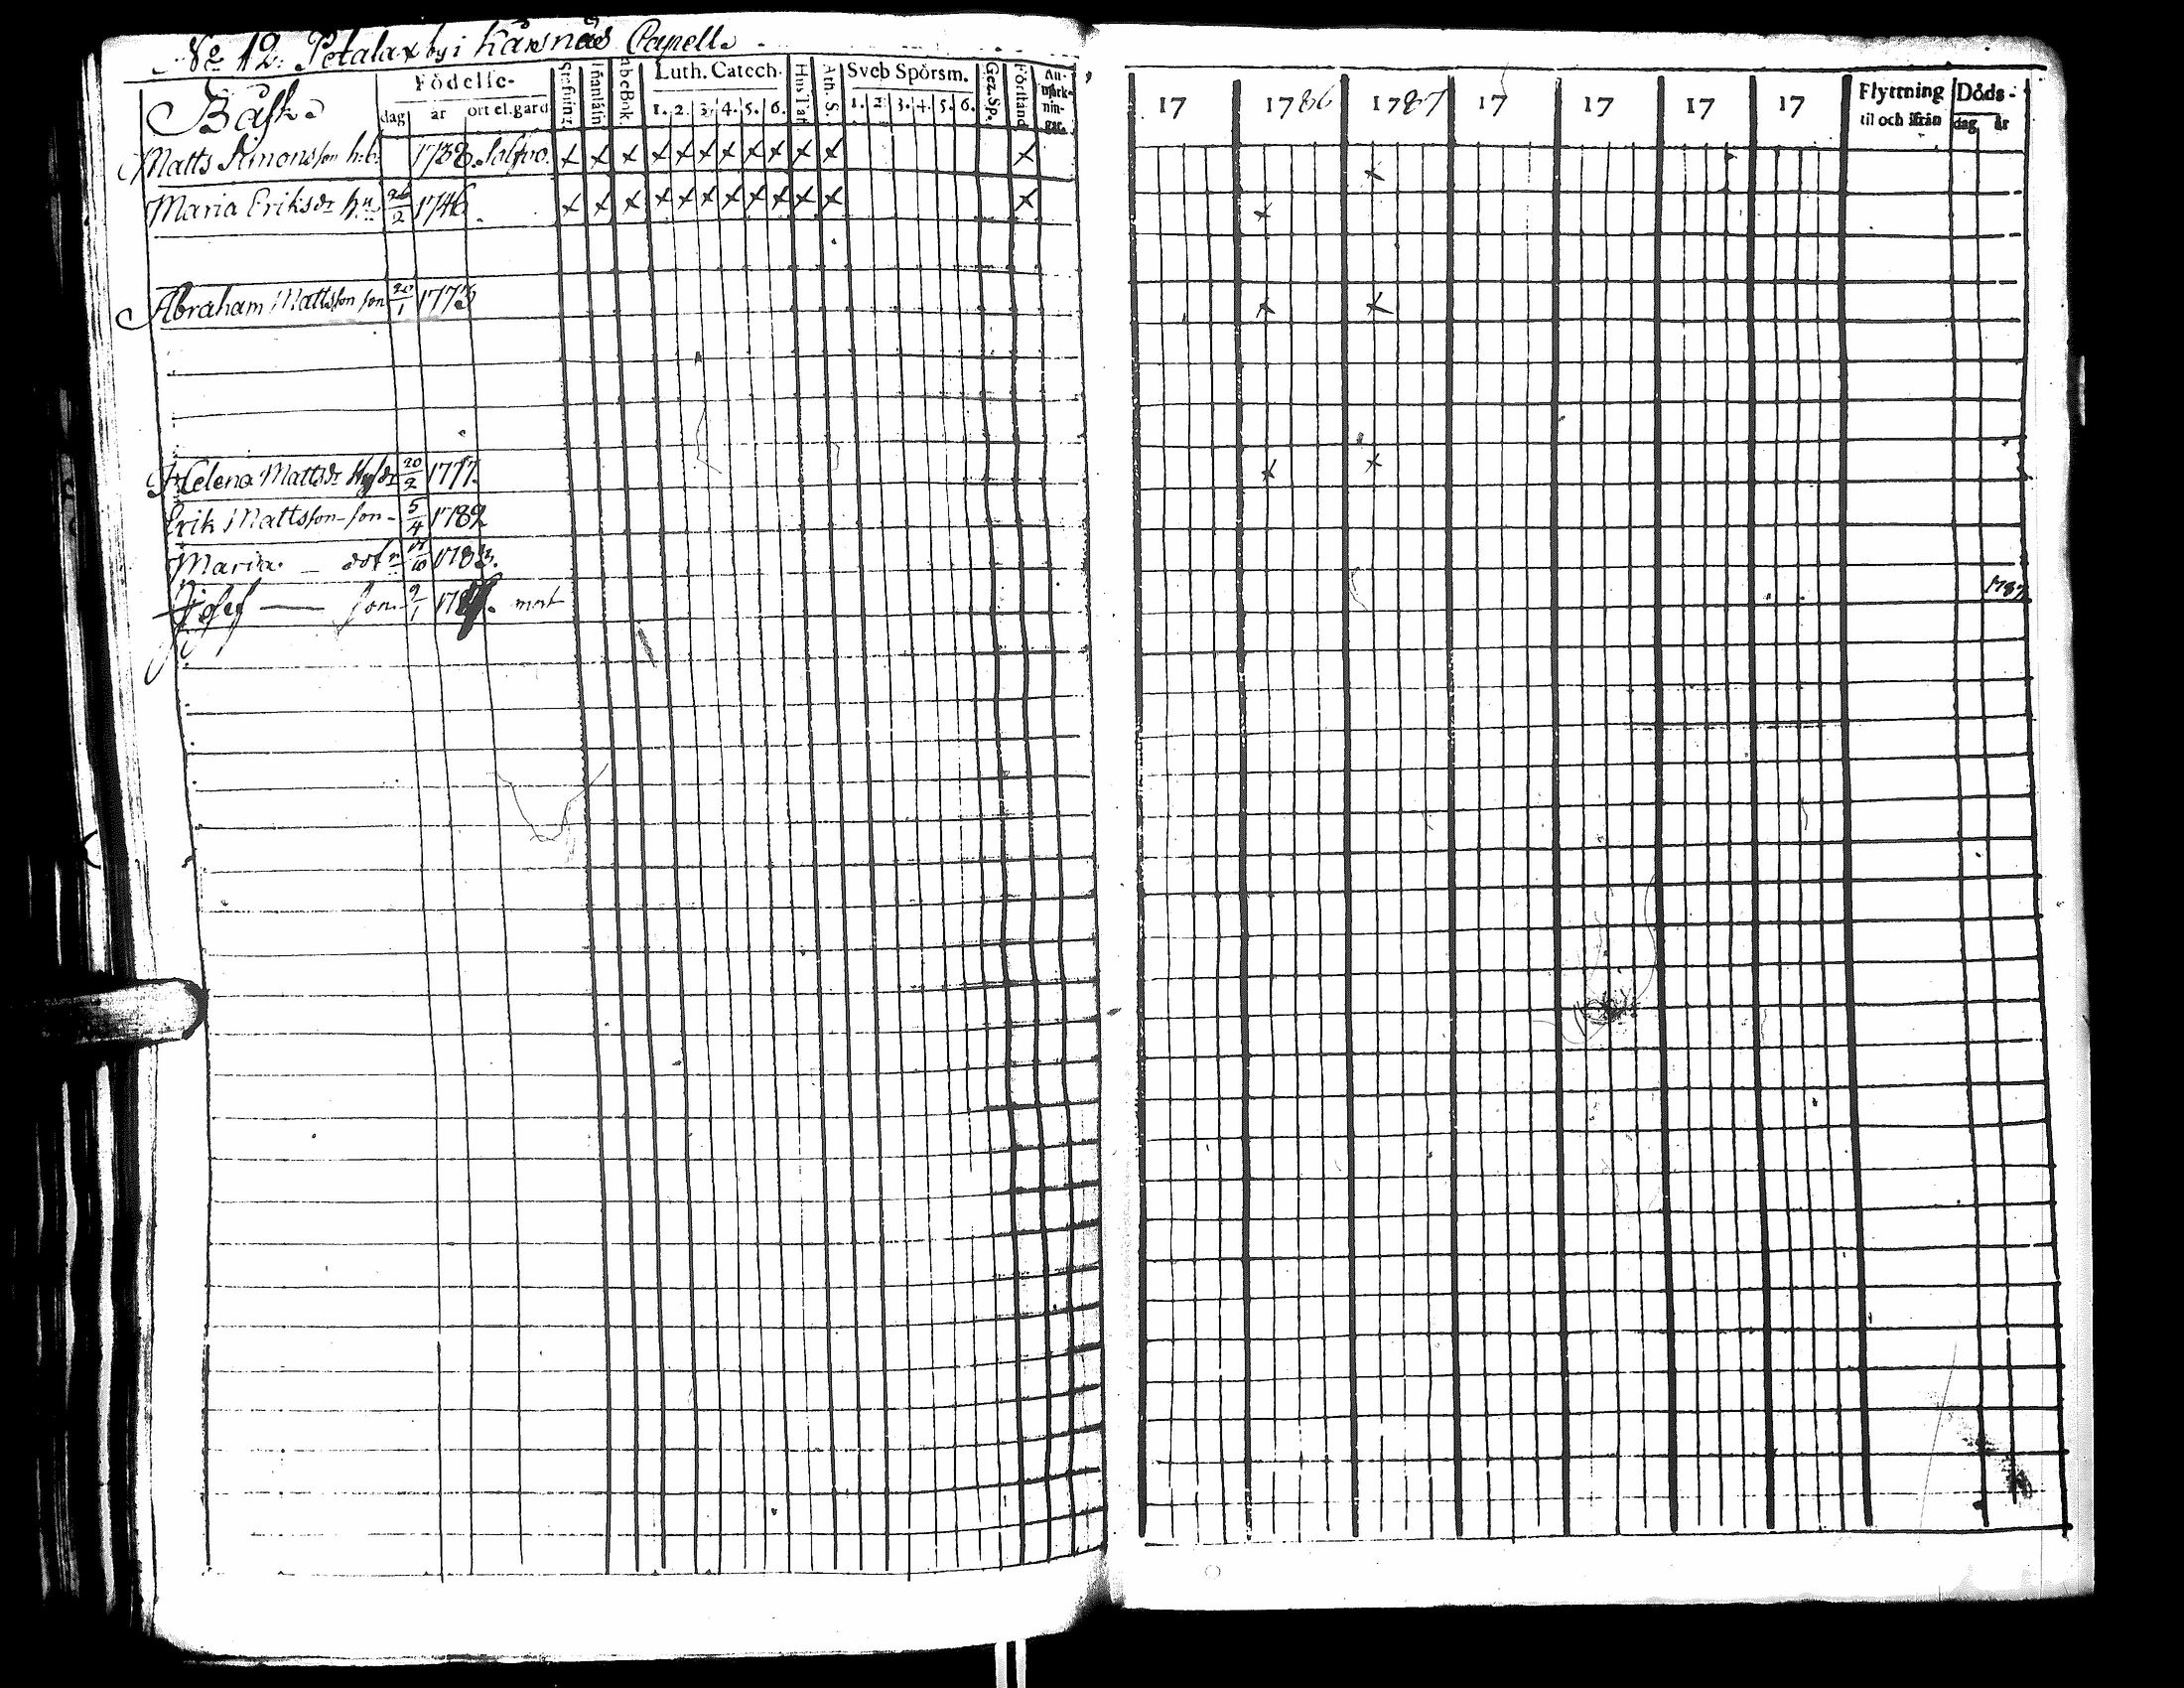 No 12. Petalax by i Kårsnäs Capell.
Båsk.
Födelse-
dag år ort el. gård
Stafning.
Innanläsn
abc Bok.
Luth. Catech.
1. 2. 3. 4. 5. 6.
Hus Tafl
Ath. S.
Sveb Spörsm.
1. 2. 3. 4. 5. 6.
Gez. Sp.
Förstånd
An-
märk-
nin-
gar.
Matts Simonsson h.b. 1738. Solfvo. x x x x x x x x x x x x
Maria Eriksdr hu 26/2 1746. x x x x x x x x x x x x
Abraham Mattsson son 20/1 1773
Helena Mattsdr 20/2 1777.
Erik Mattsson son 5/4 1782
Maria. — dotr /10 1783.
Josef — son 9/1 178
17 1786 1787 17 17 17 17
Flyttning
til och ifrån
Döds-
dag år
x
x
x x
x x
1787